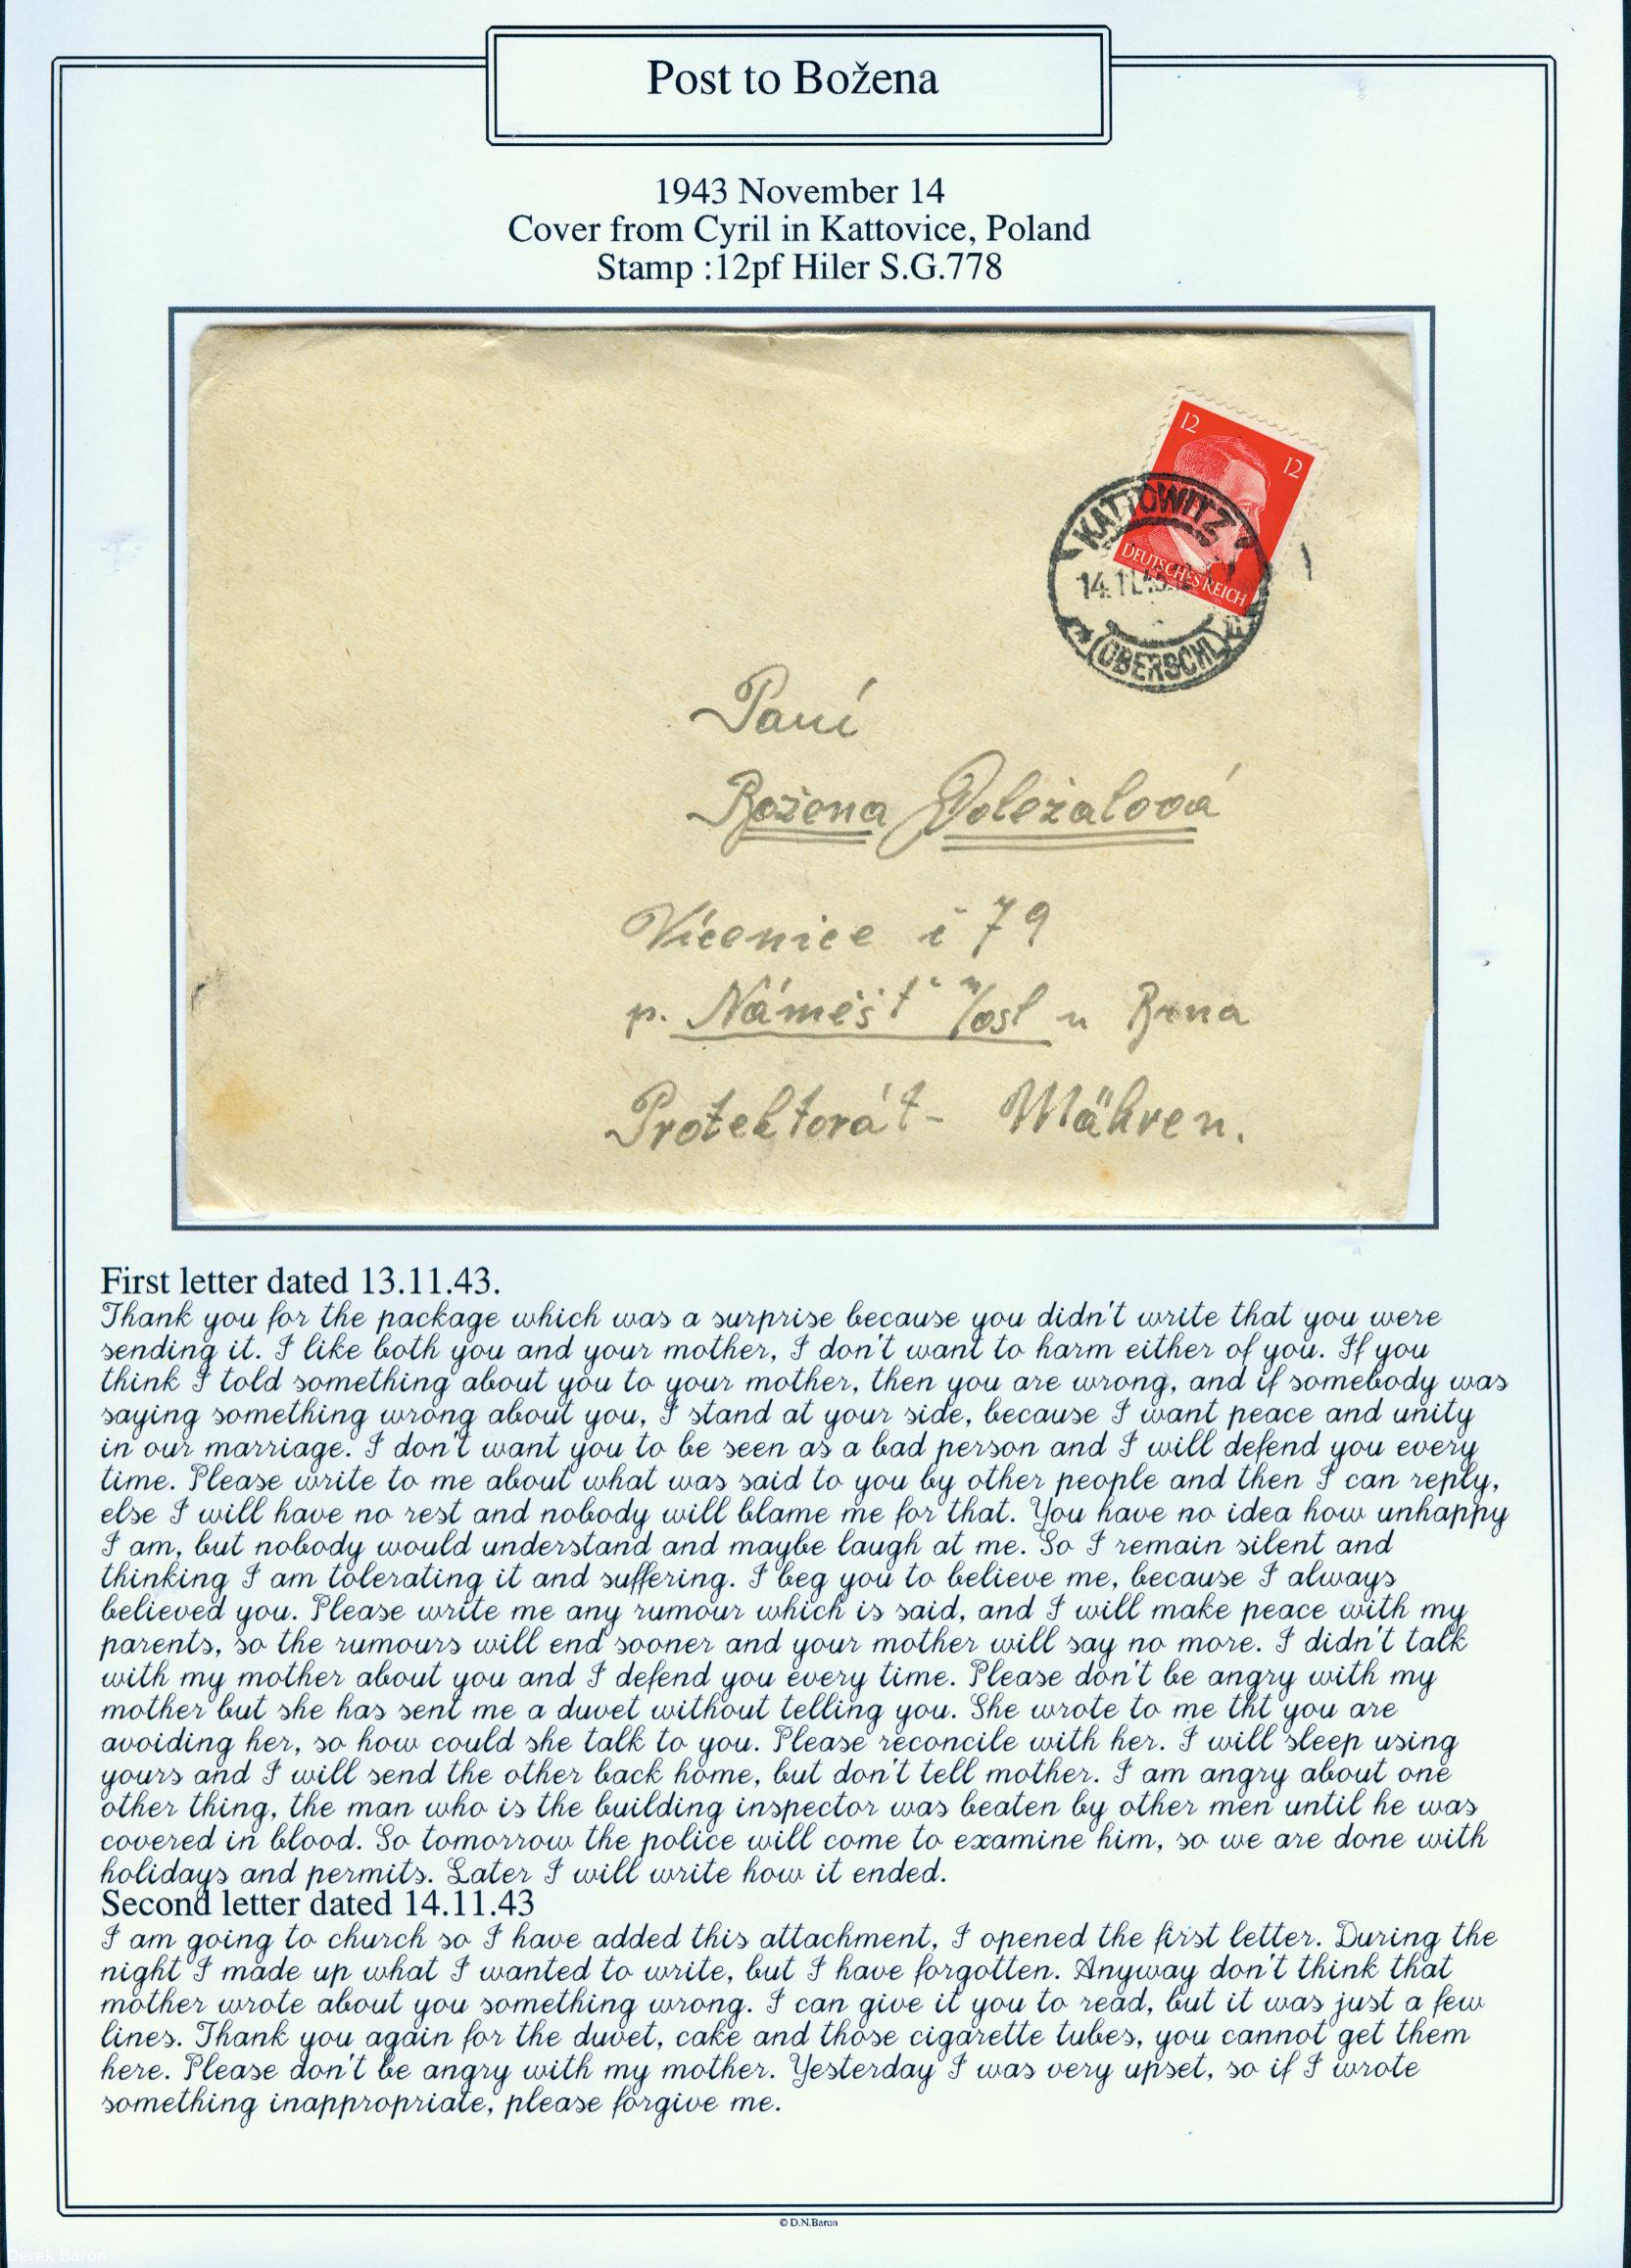 Post to Božena
1943 November 14
Cover from Cyril in Kattovice, Poland
Stamp :12pf Hiler S.G.778
12
12
DEUTSCHES REICH
KATTOWITZ
14.11.43
(OBERSCHL)
Paní
Božena Doležalová
Vícenice č 79
p. Náměšť n/osl u Brna
Protektorát - Mähren.
First letter dated 13.11.43.
Thank you for the package which was a surprise because you didn't write that you were
sending it. I like both you and your mother, I don't want to harm either of you. If you
think I told something about you to your mother, then you are wrong, and if somebody was
saying something wrong about you, I stand at your side, because I want peace and unity
in our marriage. I don't want you to be seen as a bad person and I will defend you every
time. Please write to me about what was said to you by other people and then I can reply,
else I will have no rest and nobody will blame me for that. You have no idea how unhappy
I am, but nobody would understand and maybe laugh at me. So I remain silent and
thinking I am tolerating it and suffering. I beg you to believe me, because I always
believed you. Please write me any rumour which is said, and I will make peace with my
parents, so the rumours will end sooner and your mother will say no more. I didn't talk
with my mother about you and I defend you every time. Please don't be angry with my
mother but she has sent me a duvet without telling you. She wrote to me tht you are
avoiding her, so how could she talk to you. Please reconcile with her. I will sleep using
yours and I will send the other back home, but don't tell mother. I am angry about one
other thing, the man who is the building inspector was beaten by other men until he was
covered in blood. So tomorrow the police will come to examine him, so we are done with
holidays and permits. Later I will write how it ended.
Second letter dated 14.11.43
I am going to church so I have added this attachment, I opened the first letter. During the
night I made up what I wanted to write, but I have forgotten. Anyway don't think that
mother wrote about you something wrong. I can give it you to read, but it was just a few
lines. Thank you again for the duvet, cake and those cigarette tubes, you cannot get them
here. Please don't be angry with my mother. Yesterday I was very upset, so if I wrote
something inappropriate, please forgive me.
© D.N.Baron
Derek Baron